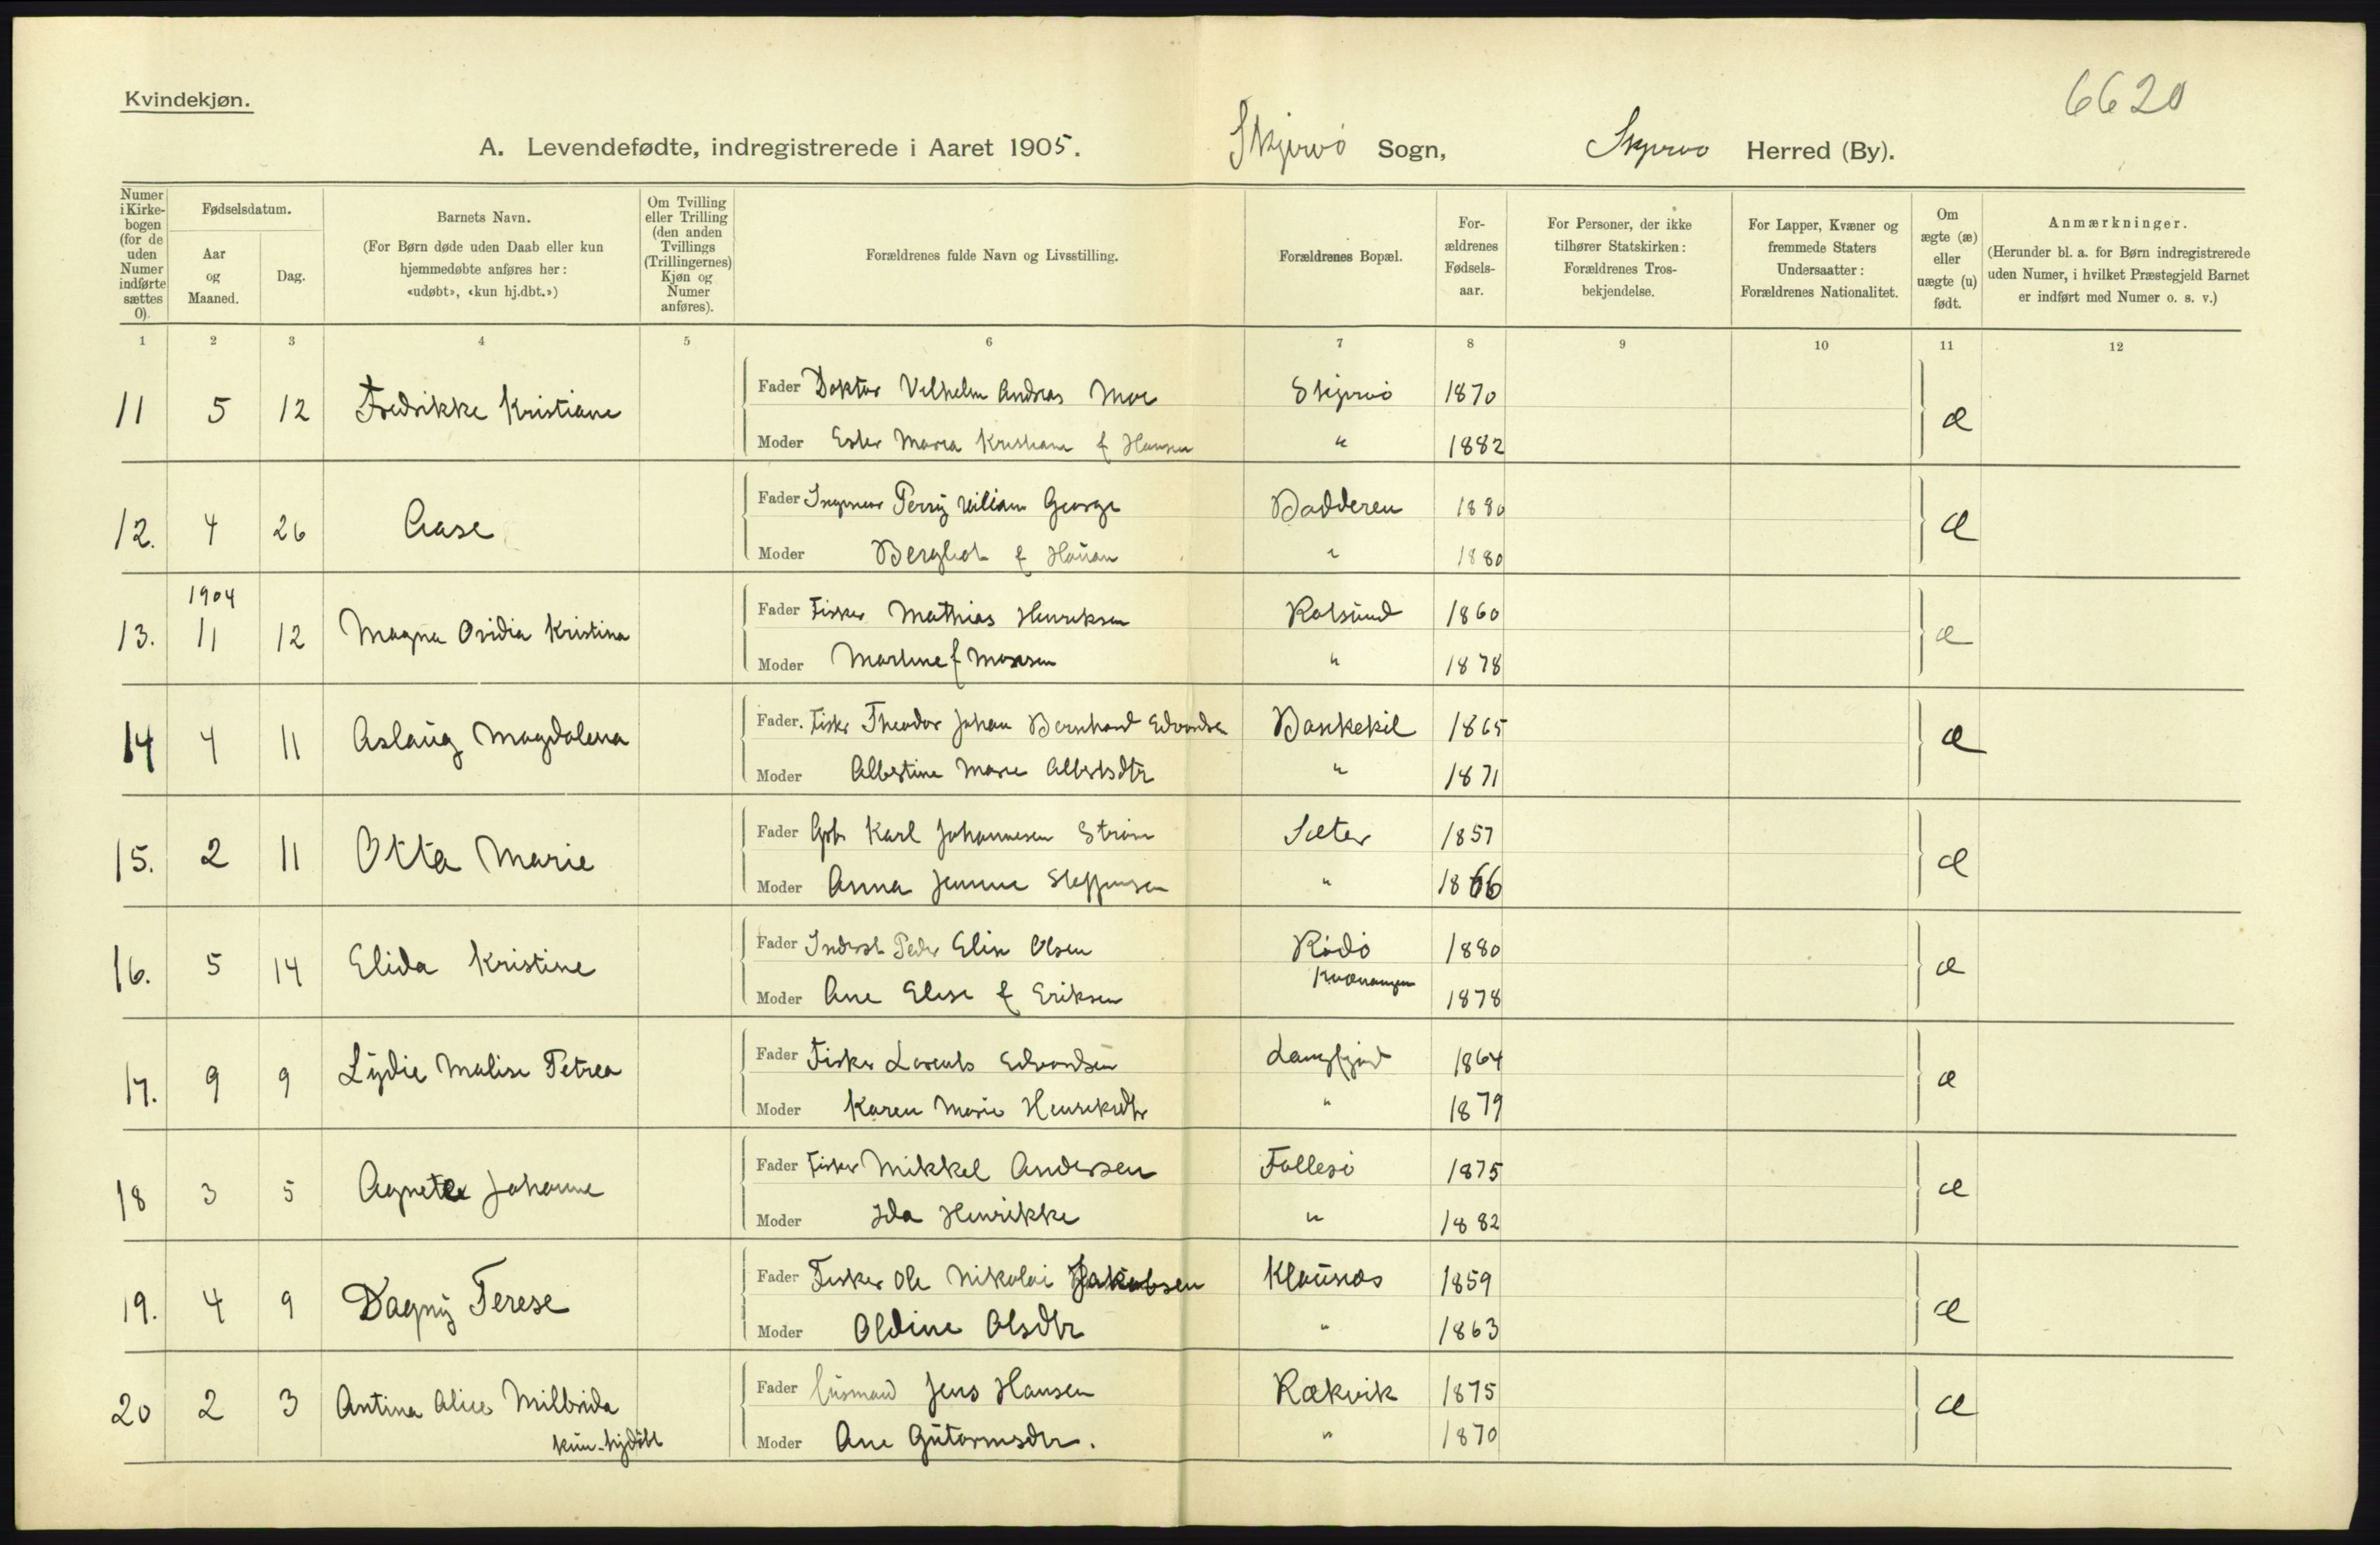 Kvindekjøn.
6620
A. Levendefødte, indregistrerede i Aaret 1905. Skjervö Sogn, Skjervö Herred (By).
Numer i Kirkebogen (for de uden Numer indførte sættes 0).
Fødselsdatum.
Aar og Maaned.
Dag.
Barnets Navn.
(For Børn døde uden Daab eller kun hjemmedøbte anføres her: «udøbt», «kun hj.dbt.»)
Om Tvilling eller Trilling (den anden Tvillings (Trillingernes) Kjøn og Numer anføres).
Forældrenes fulde Navn og Livsstilling.
Forældrenes Bopæl.
Forældrenes Fødselsaar.
For Personer, der ikke tilhører Statskirken: Forældrenes Trosbekjendelse.
For Lapper, Kvæner og fremmede Staters Undersaatter: Forældrenes Nationalitet.
Om ægte (æ) eller uægte (u) født.
Anmærkninger.
(Herunder bl. a. for Børn indregistrerede uden Numer, i hvilket Præstegjeld Barnet er indført med Numer o. s. v.)
1 2 3 4 5 6 7 8 9 10 11 12
11 5 12 Fredrikke Kristiane Fader Doktor Vilhelm Andreas Moe Skjervö 1870 æ
Moder Ester Maria Kristiane f Hansen " 1882
12. 4 26 Aase Fader Ingeniør Perrÿ Viliam George Badderen 1880 æ
Moder Bergliot f " 1880
1904
13. 11 12 Magna Ovidia Kristina Fader Fisker Mathias Henriksen Rolsund 1860 æ
Moder f " 1878
14 4 11 Aslaug Magdalena Fader. Fisker Theodor Johan Bernhard Edvardsen 1865 æ
Moder Albertine Marie Albertsdtr " 1871
15. 2 11 Otta Marie Fader Gbr Karl Johannesen Ström Sæter 1857 æ
Moder Anna Steffensen " 1866
16. 5 14 Elida Kristine Fader Inderst Peder Elin Olsen Rödö 1880 æ
Kvænangen
Moder Ane Elise f Eriksen 1878
17. 9 9 Lydie Malise Petrea Fader Fisker Lorents Edvardsen Langfjord 1864 æ
Moder Karen Marie Henriksdtr " 1879
18 3 5 Agnete Johanne Fader Fisker Mikkel Andersen Follesö 1875 æ
Moder Ida Henrikke " 1882
19. 4 9 Dagny Terese Fader Fisker Ole Nikolai Jakobsen Klaunæs 1859 æ
Moder Oldine Olsdtr " 1863
20 2 3 Antina Alice Milbrida Fader Husmand Jens Hansen Rækvik 1875 æ
kun hjdöbt
Moder Ane Gutormsdtr. " 1870